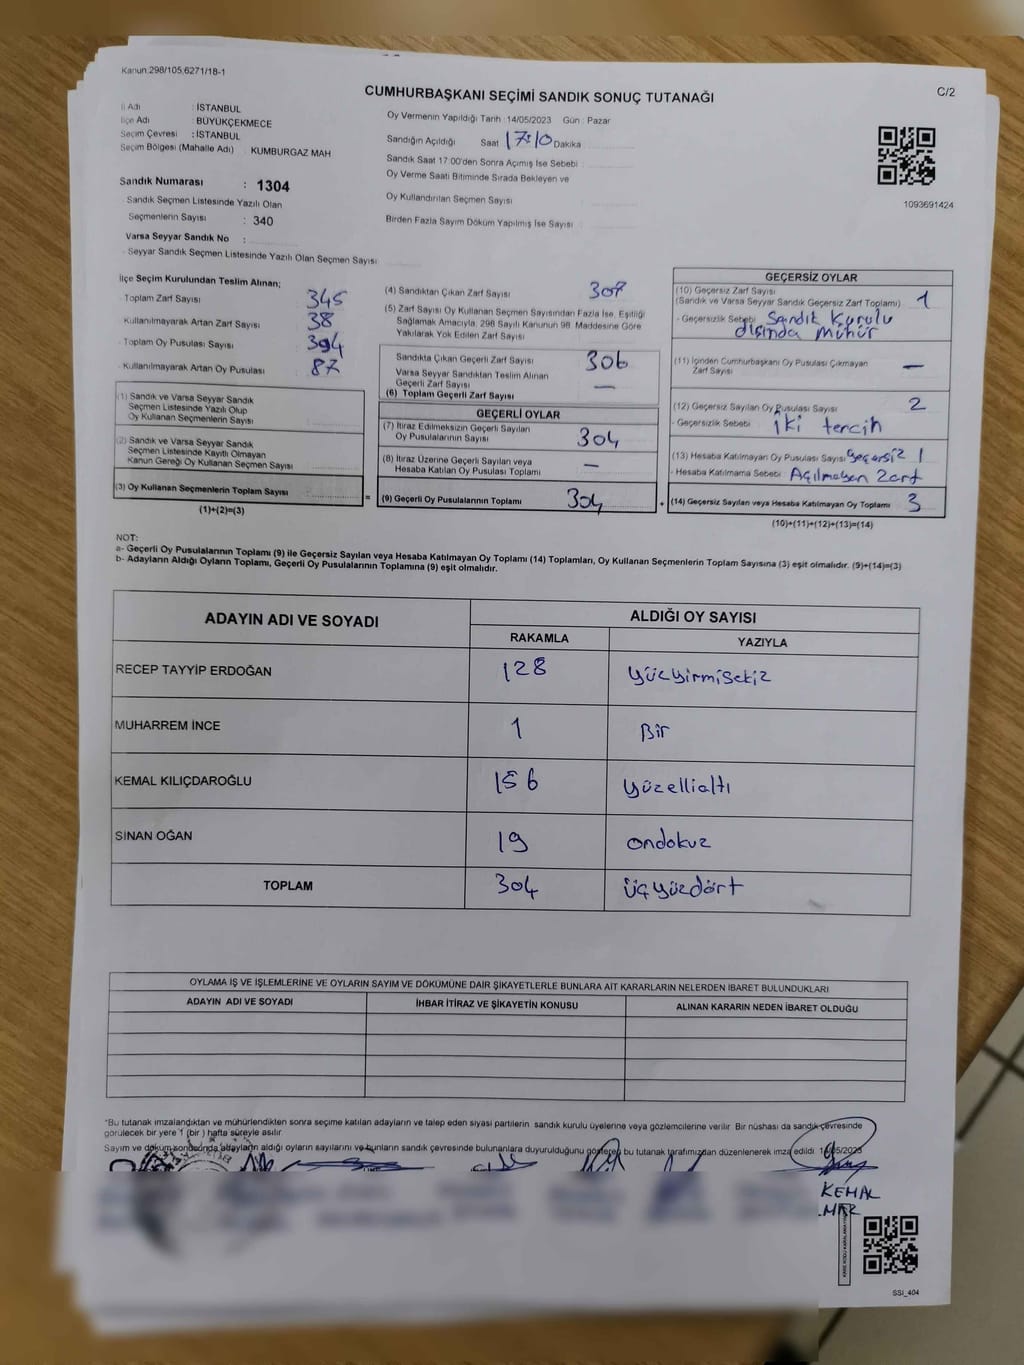 Kanun:298/105,6271/18-1
C/2
CUMHURBAŞKANI SEÇİMİ SANDIK SONUÇ TUTANAĞI
İl Adı : İSTANBUL
İlçe Adı : BÜYÜKÇEKMECE
Seçim Çevresi : İSTANBUL
Seçim Bölgesi (Mahalle Adı) KUMBURGAZ MAH
Sandık Numarası : 1304
Sandık Seçmen Listesinde Yazılı Olan
Seçmenlerin Sayısı : 340
Varsa Seyyar Sandık No :
Seyyar Sandık Seçmen Listesinde Yazılı Olan Seçmen Sayısı
Oy Vermenin Yapıldığı Tarih :14/05/2023 Gün : Pazar
Sandığın Açıldığı Saat 17:10 Dakika
Sandık Saat 17:00'den Sonra Açımış İse Sebebi :
Oy Verme Saati Bitiminde Sırada Bekleyen ve
Oy Kullandırılan Seçmen Sayısı :
Birden Fazla Sayım Döküm Yapılmış İse Sayısı :
1093691424
İlçe Seçim Kurulundan Teslim Alınan;
Toplam Zarf Sayısı 345
Kullanılmayarak Artan Zarf Sayısı 38
Toplam Oy Pusulası Sayısı 394
Kullanılmayarak Artan Oy Pusulası 87
(1) Sandık ve Varsa Seyyar Sandık
Seçmen Listesinde Yazılı Olup
Oy Kullanan Seçmenlerin Sayısı :
(2) Sandık ve Varsa Seyyar Sandık
Seçmen Listesinde Kayıtlı Olmayan
Kanun Gereği Oy Kullanan Seçmen Sayısı :
(3) Oy Kullanan Seçmenlerin Toplam Sayısı =
(1)+(2)=(3)
(4) Sandıktan Çıkan Zarf Sayısı 307
(5) Zarf Sayısı Oy Kullanan Seçmen Sayısından Fazla İse, Eşitliği
Sağlamak Amacıyla, 298 Sayılı Kanunun 98. Maddesine Göre
Yakılarak Yok Edilen Zarf Sayısı
Sandıkta Çıkan Geçerli Zarf Sayısı 306
Varsa Seyyar Sandıktan Teslim Alınan
Geçerli Zarf Sayısı —
(6) Toplam Geçerli Zarf Sayısı
GEÇERLİ OYLAR
(7) İtiraz Edilmeksizin Geçerli Sayılan
Oy Pusulalarının Sayısı 304
(8) İtiraz Üzerine Geçerli Sayılan veya
Hesaba Katılan Oy Pusulası Toplamı —
(9) Geçerli Oy Pusulalarının Toplamı 304 +
GEÇERSİZ OYLAR
(10) Geçersiz Zarf Sayısı
(Sandık ve Varsa Seyyar Sandık Geçersiz Zarf Toplamı) 1
- Geçersizlik Sebebi Sandık Kurulu
dışında mühür
(11) İçinden Cumhurbaşkanı Oy Pusulası Çıkmayan
Zarf Sayısı —
(12) Geçersiz Sayılan Oy Pusulası Sayısı 2
- Geçersizlik Sebebi İki tercih
(13) Hesaba Katılmayan Oy Pusulası Sayısı Geçersiz 1
- Hesaba Katılmama Sebebi Açılmayan Zarf
(14) Geçersiz Sayılan veya Hesaba Katılmayan Oy Toplamı 3
(10)+(11)+(12)+(13)=(14)
NOT:
a- Geçerli Oy Pusulalarının Toplamı (9) ile Geçersiz Sayılan veya Hesaba Katılmayan Oy Toplamı (14) Toplamları, Oy Kullanan Seçmenlerin Toplam Sayısına (3) eşit olmalıdır. (9)+(14)=(3)
b- Adayların Aldığı Oyların Toplamı, Geçerli Oy Pusulalarının Toplamına (9) eşit olmalıdır.
ADAYIN ADI VE SOYADI
ALDIĞI OY SAYISI
RAKAMLA YAZIYLA
RECEP TAYYİP ERDOĞAN 128 yüzyirmisekiz
MUHARREM İNCE 1 Bir
KEMAL KILIÇDAROĞLU 156 yüzellialtı
SİNAN OĞAN 19 ondokuz
TOPLAM 304 üçyüzdört
OYLAMA İŞ VE İŞLEMLERİNE VE OYLARIN SAYIM VE DÖKÜMÜNE DAİR ŞİKAYETLERLE BUNLARA AİT KARARLARIN NELERDEN İBARET BULUNDUKLARI
ADAYIN ADI VE SOYADI İHBAR İTİRAZ VE ŞİKAYETİN KONUSU ALINAN KARARIN NEDEN İBARET OLDUĞU
"Bu tutanak imzalandıktan ve mühürlendikten sonra seçime katılan adayların ve talep eden siyasi partilerin sandık kurulu üyelerine veya gözlemcilerine verilir Bir nüshası da sandık çevresinde
görülecek bir yere 1 (bir ) hafta süreyle asılır
Sayım ve döküm sonucunda adayların aldığı oyların sayılarını ve bunların sandık çevresinde bulunanlara duyurulduğunu gösteren bu tutanak tarafımızdan düzenlenerek imza edildi
KEMAL
SSI_404